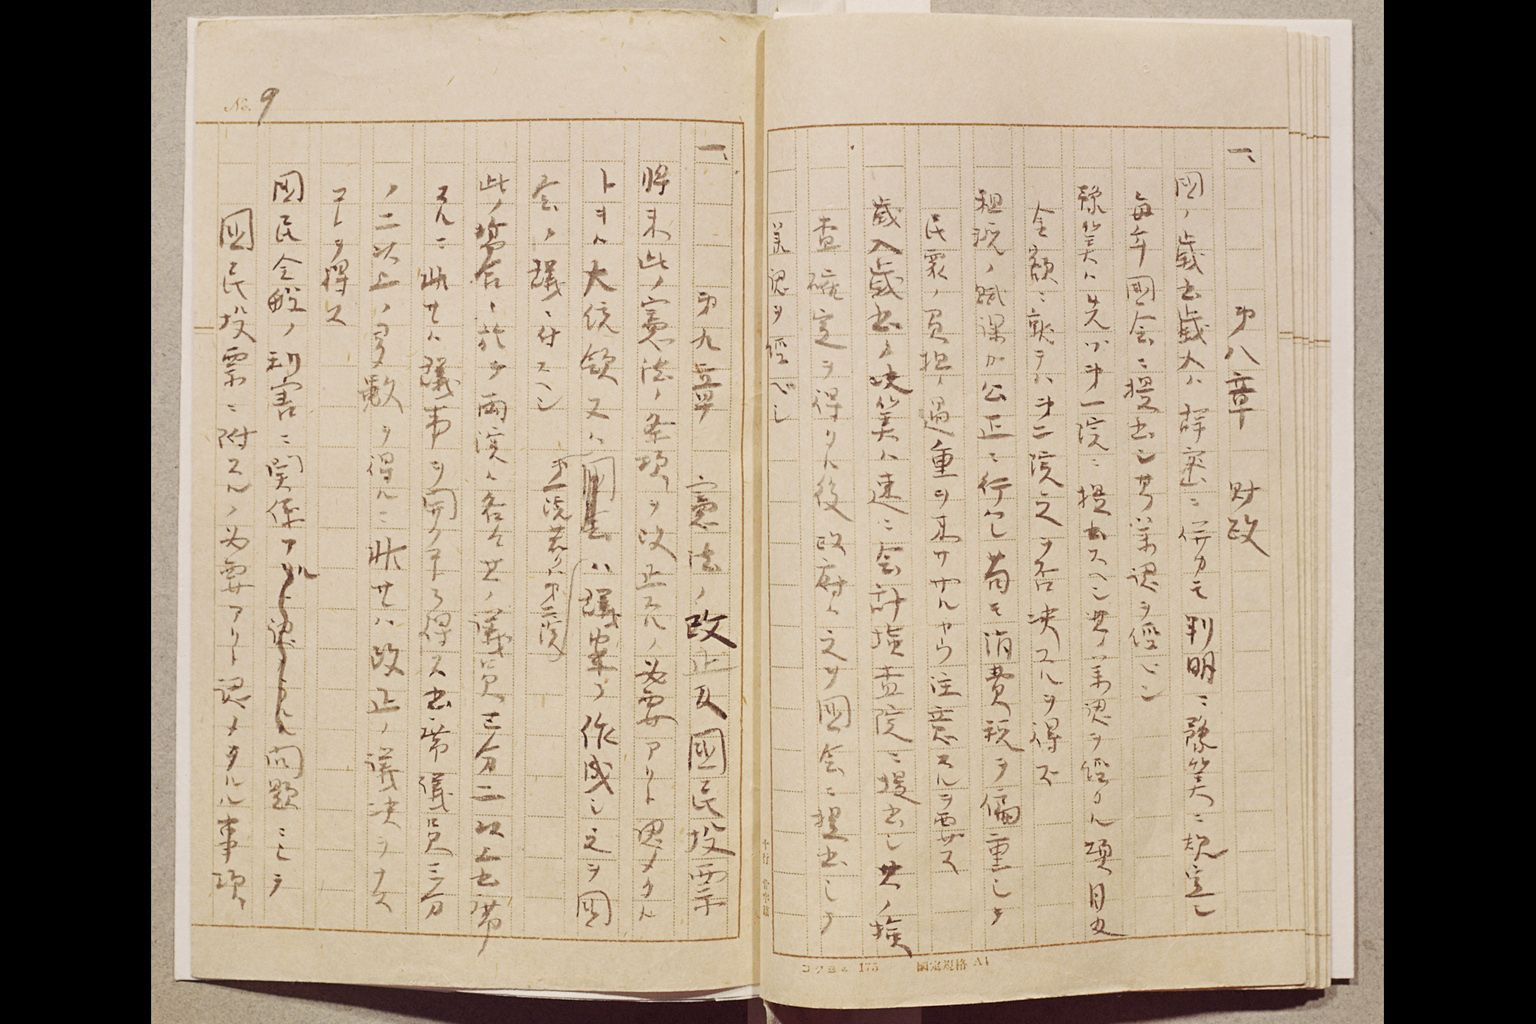 一、
第八章 財政
國ノ歳出歳入ハ詳密ニ併カモ判明ニ豫算ニ規定シ
毎年國会ニ提出シ其ノ承認ヲ経ベシ
豫算ハ先ヅ第一院ニ提出スベシ其ノ承認ヲ経タル項目及
金額ニ就テハ第二院之ヲ否決スルヲ得ズ
租税ノ賦課ハ公正ニ行ヒ苟モ消費税ヲ偏重シテ
民衆ノ負担ノ過重ヲ来サザルヤウ注意スルヲ要ス
歳入歳出ノ決算ハ速ニ会計検査院ニ提出シ其ノ検
査確定ヲ得タル後政府ハ之ヲ國会ニ提出シテ
承認ヲ経ベシ
コクヨ 175 国定規格 A4
No. 9
一、
第九章 憲法ノ改正及國民投票
将来此ノ憲法ノ条項ヲ改正スルノ必要アリト認メタル
トキハ大統領又ハ第一院若クハ第二院ハ議案ヲ作成シ之ヲ國
会ノ議ニ付スベシ
此ノ場合ニ於テ両院ハ各々其ノ議員三分ノ二以上出席
スルニ非サレハ議事ヲ開クコトヲ得ス出席議員三分
ノ二以上ノ多数ヲ得ルニ非サレハ改正ノ議決ヲナス
コトヲ得ス
國民全般ノ利害ニ関係アル問題ニシテ
國民投票ニ附スルノ必要アリト認メタル事項